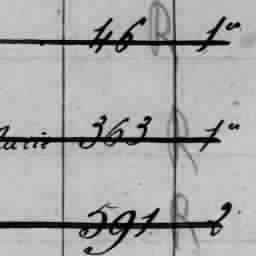 46 R 1"
363 R 1"
591 R 2